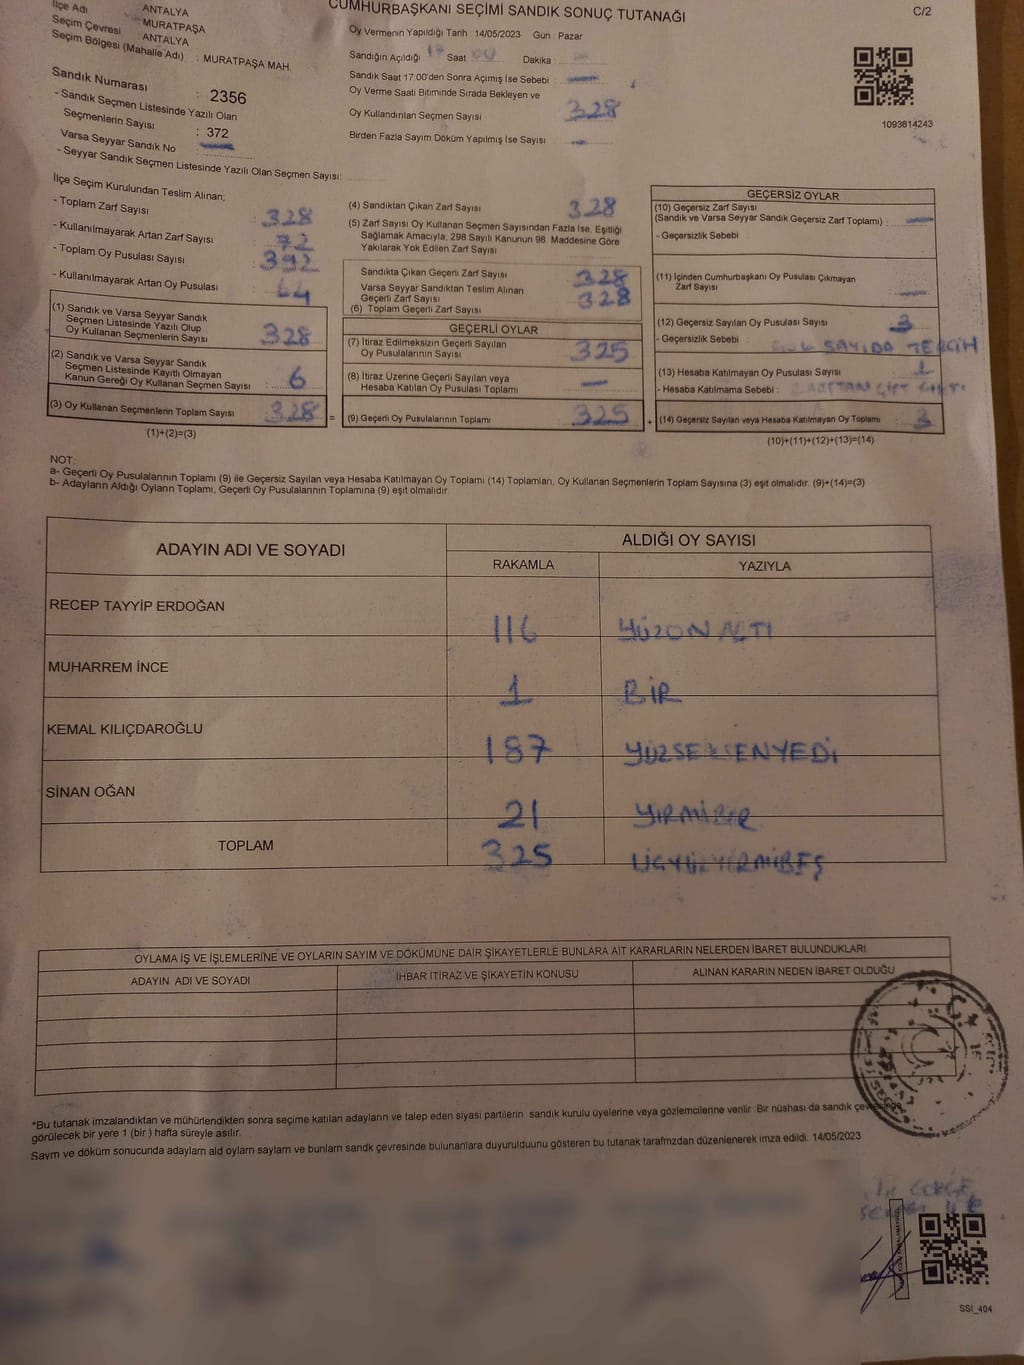 CUMHURBAŞKANI SEÇİMİ SANDIK SONUÇ TUTANAĞI
C/2
İlçe Adı
Seçim Çevresi
Seçim Bölgesi (Mahalle Adı)
ANTALYA
: MURATPAŞA
: ANTALYA
: MURATPAŞA MAH.
Sandık Numarası : 2356
- Sandık Seçmen Listesinde Yazılı Olan
Seçmenlerin Sayısı : 372
Varsa Seyyar Sandık No :
- Seyyar Sandık Seçmen Listesinde Yazılı Olan Seçmen Sayısı:
Oy Vermenin Yapıldığı Tarih 14/05/2023 Gün : Pazar
Sandığın Açıldığı Saat Dakika
Sandık Saat 17:00'den Sonra Açımış İse Sebebi :
Oy Verme Saati Bitiminde Sırada Bekleyen ve
Oy Kullandırılan Seçmen Sayısı 328
Birden Fazla Sayım Döküm Yapılmış İse Sayısı
1093814243
İlçe Seçim Kurulundan Teslim Alınan;
- Toplam Zarf Sayısı : 328
- Kullanılmayarak Artan Zarf Sayısı : 72
- Toplam Oy Pusulası Sayısı : 392
- Kullanılmayarak Artan Oy Pusulası : 64
(1) Sandık ve Varsa Seyyar Sandık
Seçmen Listesinde Yazılı Olup
Oy Kullanan Seçmenlerin Sayısı : 328
(2) Sandık ve Varsa Seyyar Sandık
Seçmen Listesinde Kayıtlı Olmayan
Kanun Gereği Oy Kullanan Seçmen Sayısı : 6
(3) Oy Kullanan Seçmenlerin Toplam Sayısı : 328 =
(1)+(2)=(3)
(4) Sandıktan Çıkan Zarf Sayısı 328
(5) Zarf Sayısı Oy Kullanan Seçmen Sayısından Fazla İse, Eşitliği
Sağlamak Amacıyla, 298 Sayılı Kanunun 98. Maddesine Göre
Yakılarak Yok Edilen Zarf Sayısı
Sandıkta Çıkan Geçerli Zarf Sayısı 328
Varsa Seyyar Sandıktan Teslim Alınan
Geçerli Zarf Sayısı 328
(6) Toplam Geçerli Zarf Sayısı
GEÇERLİ OYLAR
(7) İtiraz Edilmeksizin Geçerli Sayılan
Oy Pusulalarının Sayısı 325
(8) İtiraz Üzerine Geçerli Sayılan veya
Hesaba Katılan Oy Pusulası Toplamı
(9) Geçerli Oy Pusulalarının Toplamı 325 +
GEÇERSİZ OYLAR
(10) Geçersiz Zarf Sayısı
(Sandık ve Varsa Seyyar Sandık Geçersiz Zarf Toplamı) :
- Geçersizlik Sebebi :
(11) İçinden Cumhurbaşkanı Oy Pusulası Çıkmayan
Zarf Sayısı
(12) Geçersiz Sayılan Oy Pusulası Sayısı 3
- Geçersizlik Sebebi : SAYIDA TERCİH
(13) Hesaba Katılmayan Oy Pusulası Sayısı : 1
- Hesaba Katılmama Sebebi : ZARFTAN ÇİFT ÇIKTI
(14) Geçersiz Sayılan veya Hesaba Katılmayan Oy Toplamı : 3
(10)+(11)+(12)+(13)=(14)
NOT:
a- Geçerli Oy Pusulalarının Toplamı (9) ile Geçersiz Sayılan veya Hesaba Katılmayan Oy Toplamı (14) Toplamları, Oy Kullanan Seçmenlerin Toplam Sayısına (3) eşit olmalıdır. (9)+(14)=(3)
b- Adayların Aldığı Oyların Toplamı, Geçerli Oy Pusulalarının Toplamına (9) eşit olmalıdır
ADAYIN ADI VE SOYADI
ALDIĞI OY SAYISI
RAKAMLA YAZIYLA
RECEP TAYYİP ERDOĞAN 116 YÜZONALTI
MUHARREM İNCE 1 BİR
KEMAL KILIÇDAROĞLU 187 YÜZSEKSENYEDİ
SİNAN OĞAN 21 YİRMİBİR
TOPLAM 325 ÜÇYÜZYİRMİBEŞ
OYLAMA İŞ VE İŞLEMLERİNE VE OYLARIN SAYIM VE DÖKÜMÜNE DAİR ŞİKAYETLERLE BUNLARA AİT KARARLARIN NELERDEN İBARET BULUNDUKLARI
ADAYIN ADI VE SOYADI İHBAR İTİRAZ VE ŞİKAYETİN KONUSU ALINAN KARARIN NEDEN İBARET OLDUĞU
*Bu tutanak imzalandıktan ve mühürlendikten sonra seçime katılan adayların ve talep eden siyasi partilerin sandık kurulu üyelerine veya gözlemcilerine verilir. Bir nüshası da sandık
görülecek bir yere 1 (bir ) hafta süreyle asılır.
Sayım ve döküm sonucunda adayların ald oyların sayların ve bunların sandk çevresinde bulunanlara duyurulduunu gösteren bu tutanak tarafmzdan düzenlenerek imza edildi. 14/05/2023
SSİ_404